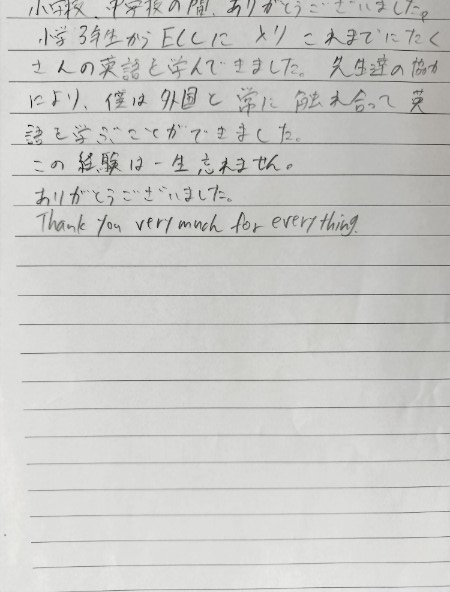 小学校、中学校の間、ありがとうございました。
小学3年生からECCに入り これまでにたく
さんの英語を学んできました。先生達の協力
により、僕は外国と常に触れ合って英
語を学ぶことができました。
この経験は一生忘れません。
ありがとうございました。
Thank you very much for everything.